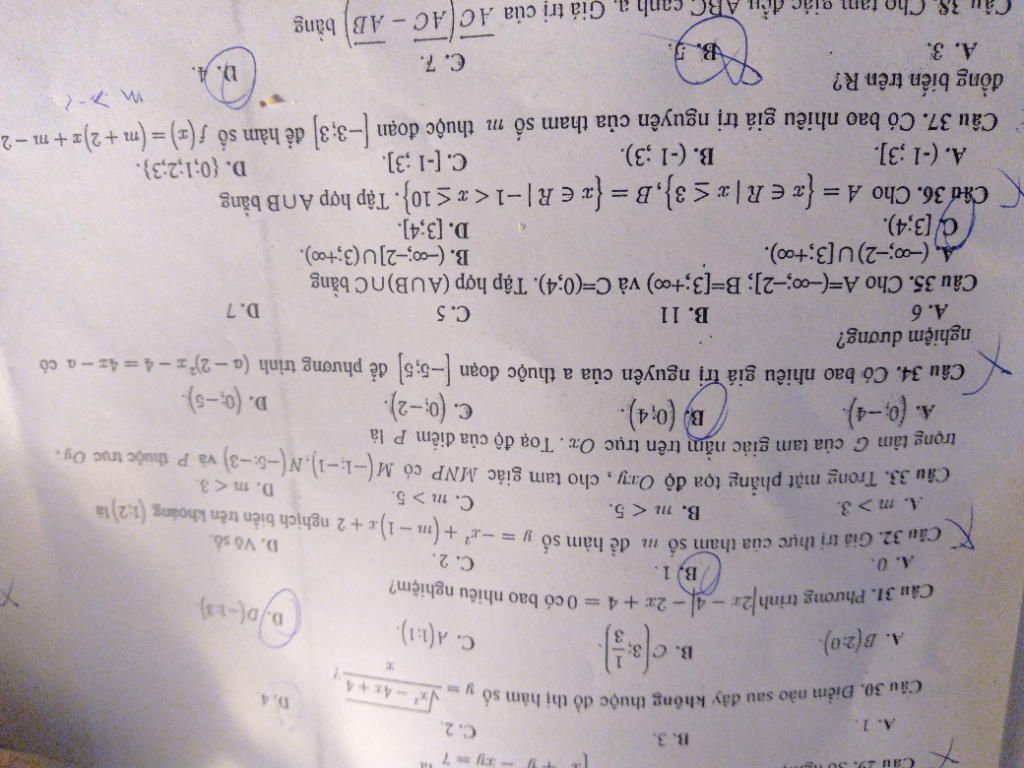 Câu 29.
x + y - xy = 7
A. 1. B. 3. C. 2. D. 4
Câu 30. Điểm nào sau đây không thuộc đồ thị hàm số y = \frac{\sqrt{x² - 4x + 4}}{x} ?
A. B(2;0). B. C(3; 1/3). C. A(1;1). D. D(-1;-3).
Câu 31. Phương trình |2x - 4| - 2x + 4 = 0 có bao nhiêu nghiệm?
A. 0. B. 1. C. 2. D. Vô số.
Câu 32. Giá trị thực của tham số m để hàm số y = -x² + (m - 1)x + 2 nghịch biến trên khoảng (1;2) là
A. m > 3. B. m < 5. C. m > 5. D. m < 3.
Câu 33. Trong mặt phẳng tọa độ Oxy, cho tam giác MNP có M(-1;-1), N(-5;-3) và P thuộc trục Oy.
trọng tâm G của tam giác nằm trên trục Ox. Toạ độ của điểm P là
A. (0;-4). B. (0;4). C. (0;-2). D. (0;-5).
Câu 34. Có bao nhiêu giá trị nguyên của a thuộc đoạn [-5;5] để phương trình (a - 2)²x - 4 = 4x - a có
nghiệm dương?
A. 6 B. 11 C. 5 D. 7
Câu 35. Cho A=(-∞;-2]; B=[3;+∞) và C=(0;4). Tập hợp (A∪B)∩C bằng
A. (-∞;-2)∪[3;+∞). B. (-∞;-2]∪(3;+∞).
C. [3;4). D. [3;4].
Câu 36. Cho A = {x ∈ R | x ≤ 3}, B = {x ∈ R | -1 < x ≤ 10}. Tập hợp A∩B bằng
A. (-1 ;3]. B. (-1 ;3). C. [-1 ;3]. D. {0;1;2;3}.
Câu 37. Có bao nhiêu giá trị nguyên của tham số m thuộc đoạn [-3;3] để hàm số f(x) = (m + 2)x + m - 2
đồng biến trên R?
A. 3. B. 5. C. 7. D. 4.
Câu 38. Cho tam giác đều ABC cạnh a. Giá trị của AC(AC - AB) bằng